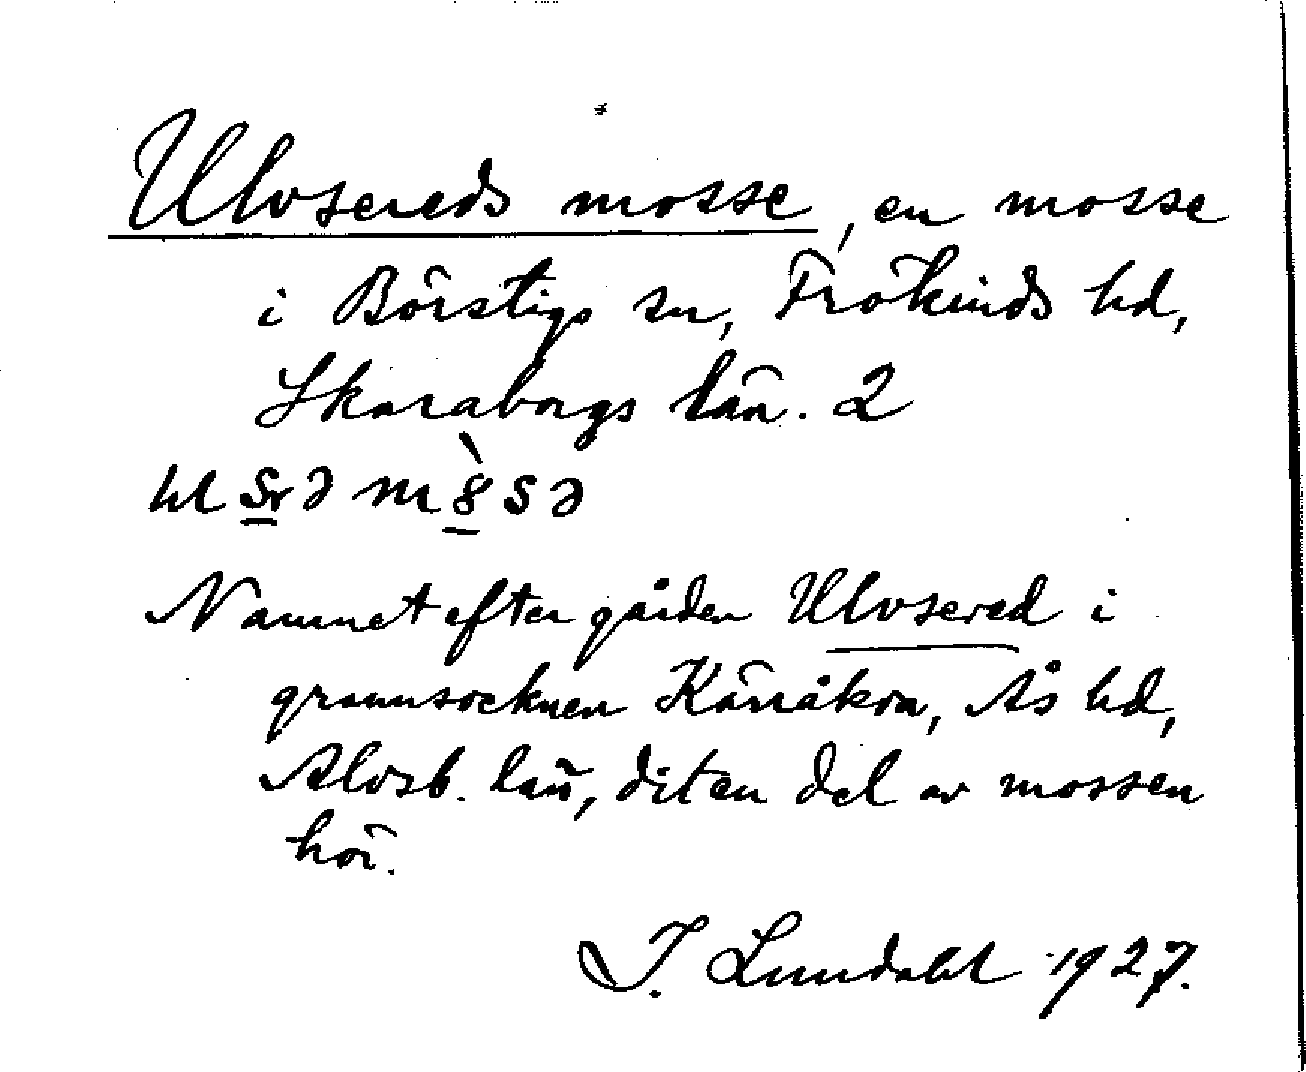 Ulvsereds mosse, en mosse
i Börstigs sn, Frökinds hd,
Skaraborgs län. 2
Namnet efter gården Ulvsered i
grannsocknen Kärråkra, Ås hd,
Älvsb. län, dit en del av mossen
hör.
I. Lundahl 1927.